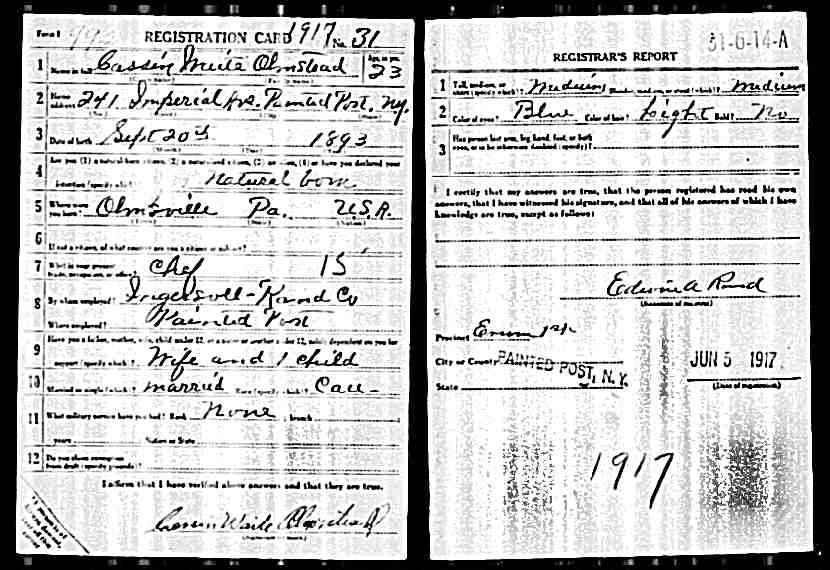 Form 1 REGISTRATION CARD 1917 No. 31
1 Name in full Cassin Olmstead Age, in yrs. 23
2 Home address 241 Imperial Ave. Painted Post. Ny.
3 Date of birth Sept 20th 1893
4 Are you (1) a natural-born citizen, (2) a naturalized citizen, (3) an alien, (4) or have you declared your
intention (specify which)? natural born
5 Where were you born? Olmsville Pa. U.S.A.
6 If not a citizen, of what country are you a citizen or subject?
7 What is your present trade, occupation, or office? Chef 15
8 By whom employed? Ingersoll-Rand Co
Where employed? Painted Post
9 Have you a father, mother, wife, child under 12, or a sister or brother under 12, solely dependent on you for
support (specify which)? Wife and 1 child
10 Married or single (which)? married Race (specify which)? Cau-
11 What military service have you had? Rank None ; branch
years Nation or State
12 Do you claim exemption from draft (specify grounds)?
I affirm that I have verified above answers and that they are true.
31-6-14-A
REGISTRAR'S REPORT
1 Tall, medium, or short (specify which)? Medium Slender, medium, or stout (which)? medium
2 Color of eyes? Blue Color of hair? Light Bald? No
3 Has person lost arm, leg, hand, foot, or both
eyes, or is he otherwise disabled (specify)?
I certify that my answers are true, that the person registered has read his own
answers, that I have witnessed his signature, and that all of his answers of which I have
knowledge are true, except as follows:
Edwin A
(Signature of registrar)
Precinct Erwin 1st
City or County PAINTED POST, N.Y.
State
JUN 5 1917
(Date of registration)
1917